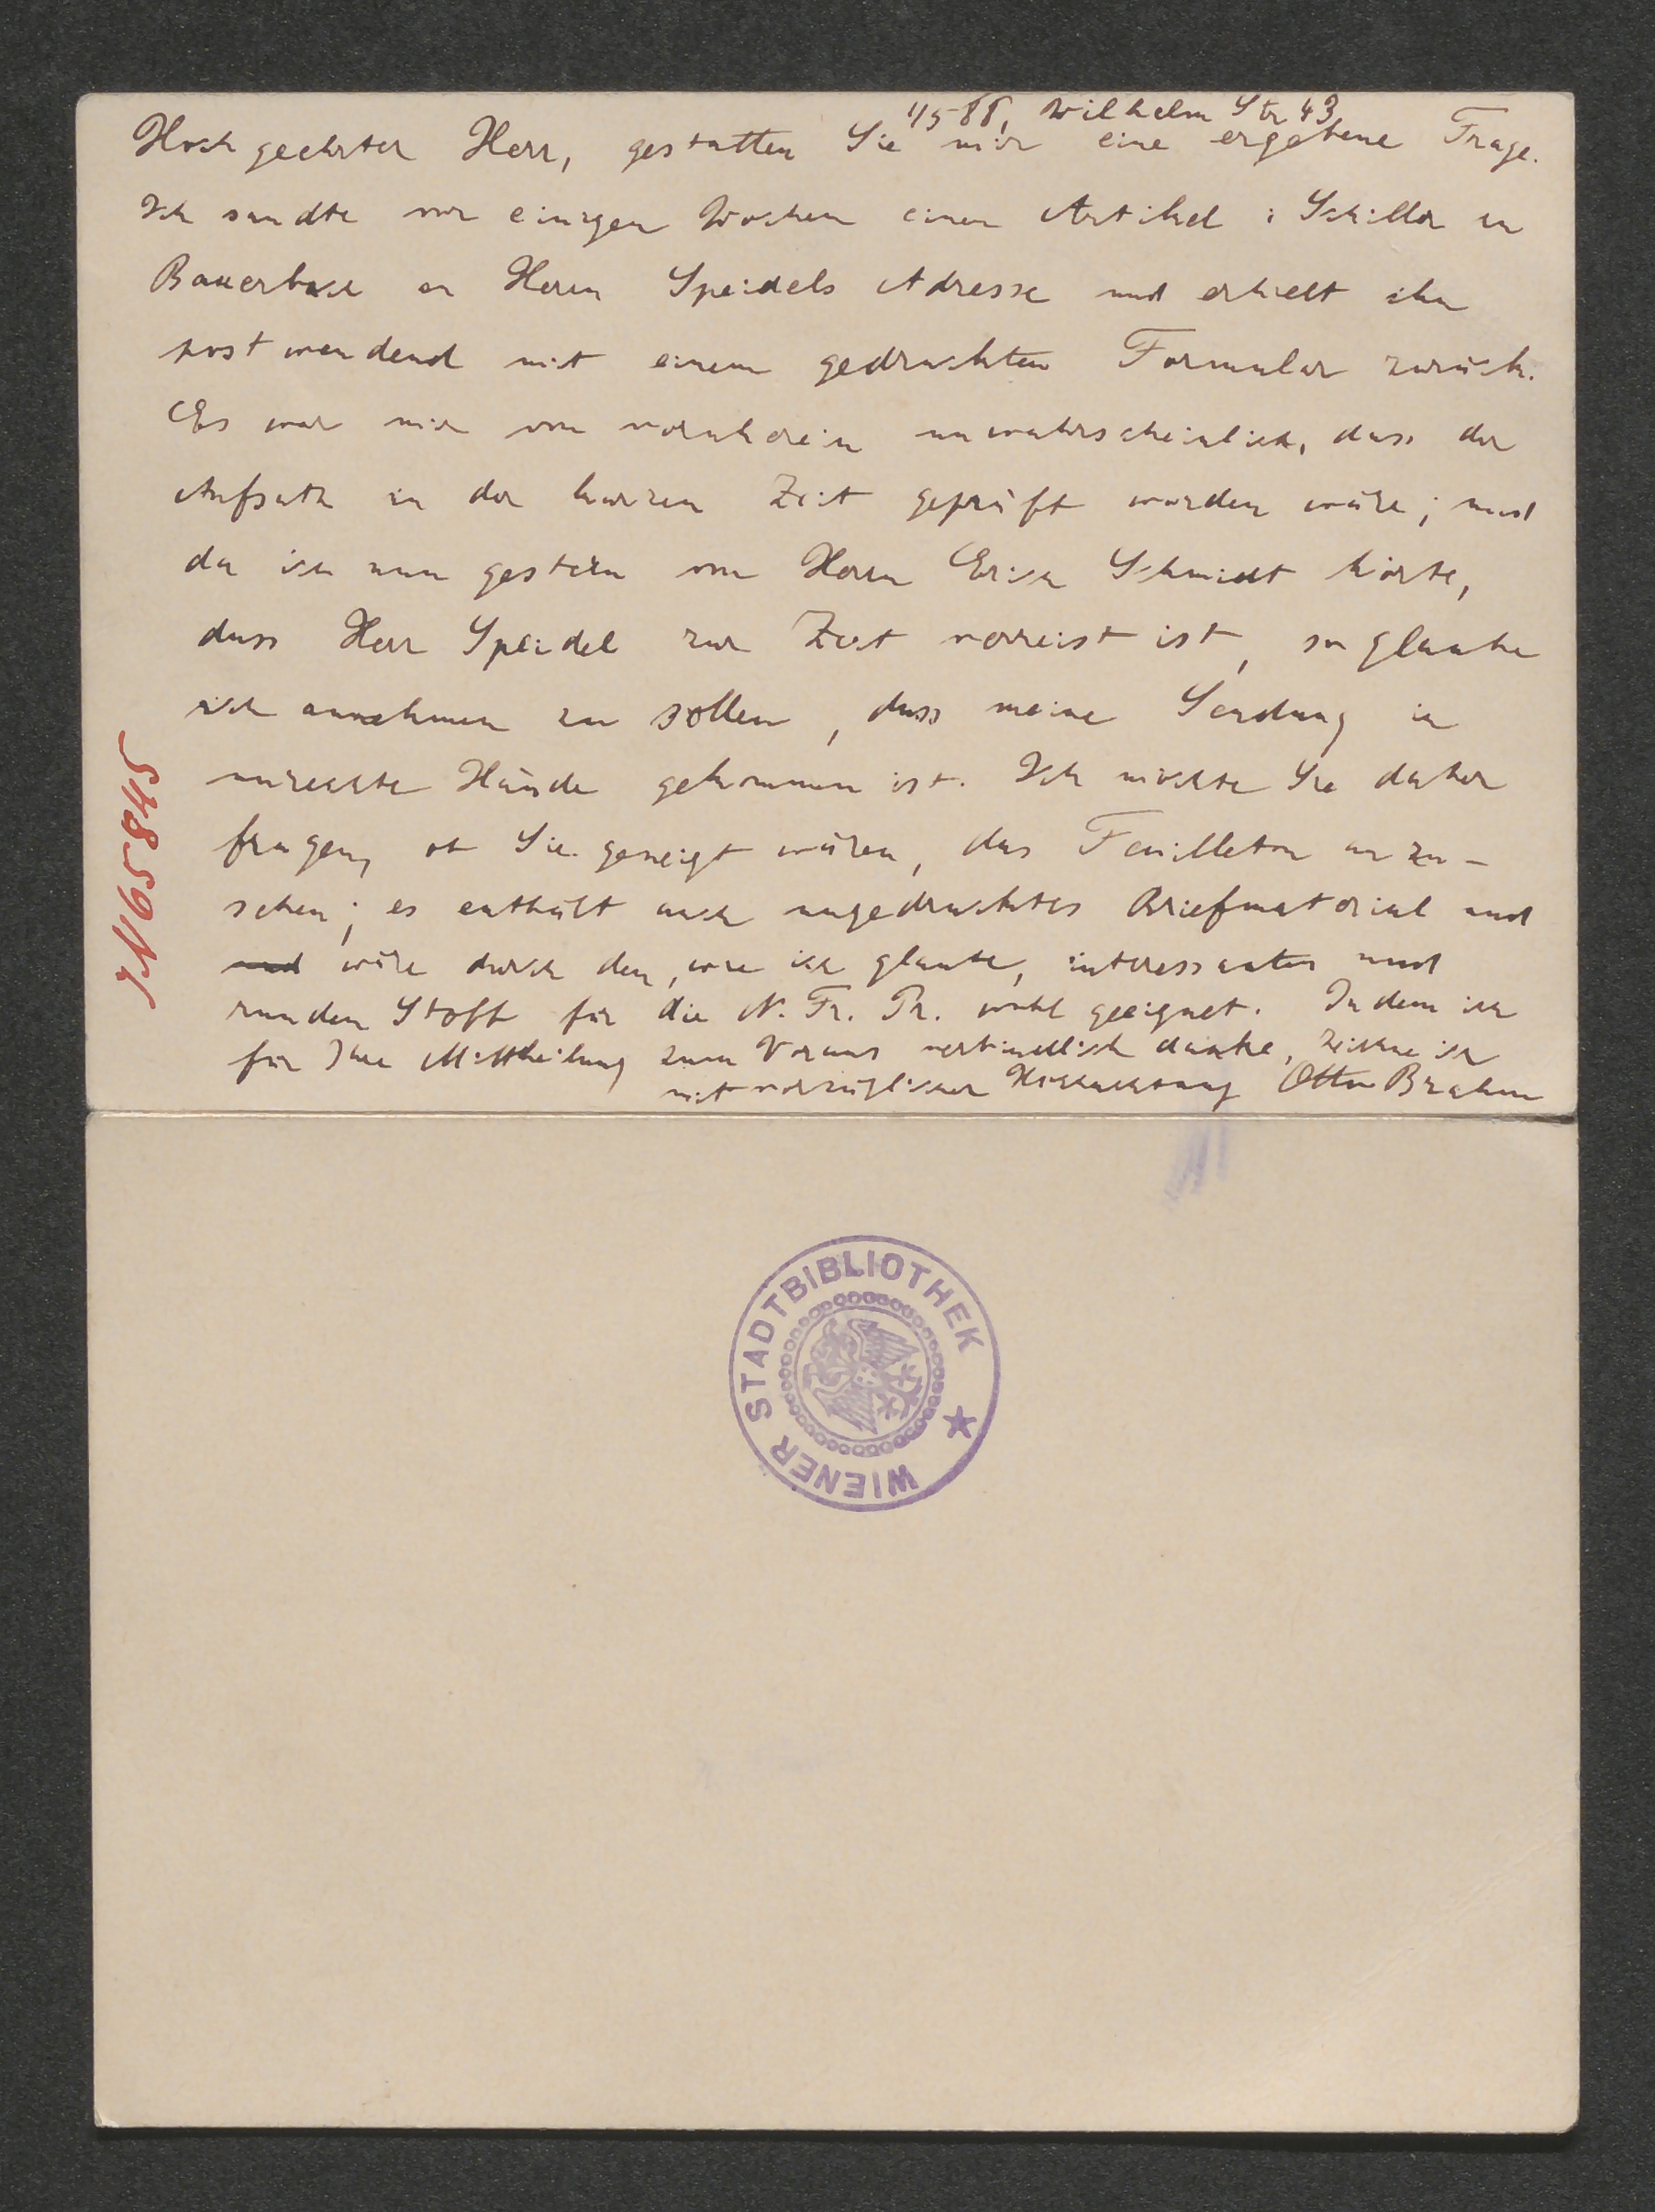 1/5 88, Wilhelm Str 43
Hochgeehrter Herr, gestatten Sie mir eine ergebene Frage.
Ich sandte vor einigen Wochen einen Artikel: Schiller in
Bauerbach an Herrn Speidels Adresse und erhielt ihn
postwendend mit einem gedruckten Formular zurück.
Es war mir von vornherein unwahrscheinlich, dass der
Aufsatz in der kurzen Zeit geprüft worden wäre; und
da ich nun gestern von Herrn Erich Schmidt hörte,
dass Herr Speidel zur Zeit verreist ist, so glaube
ich annehmen zu sollen, dass meine Sendung in
unrechte Hände gekommen ist. Ich möchte Sie daher
fragen, ob Sie geneigt wären, das Feuilleton anzu-
sehen; es enthält auch ungedrucktes Briefmaterial und
und wäre durch den, wie ich glaube, interessanten und
runden Stoff für die N. Fr. Pr. wohl geeignet. Indem ich
für Ihre Mittheilung zum Voraus verbindlich danke, zeichne ich
mit vorzüglicher Hochachtung Otto Brahm
IN 65845
WIENER STADTBIBLIOTHEK